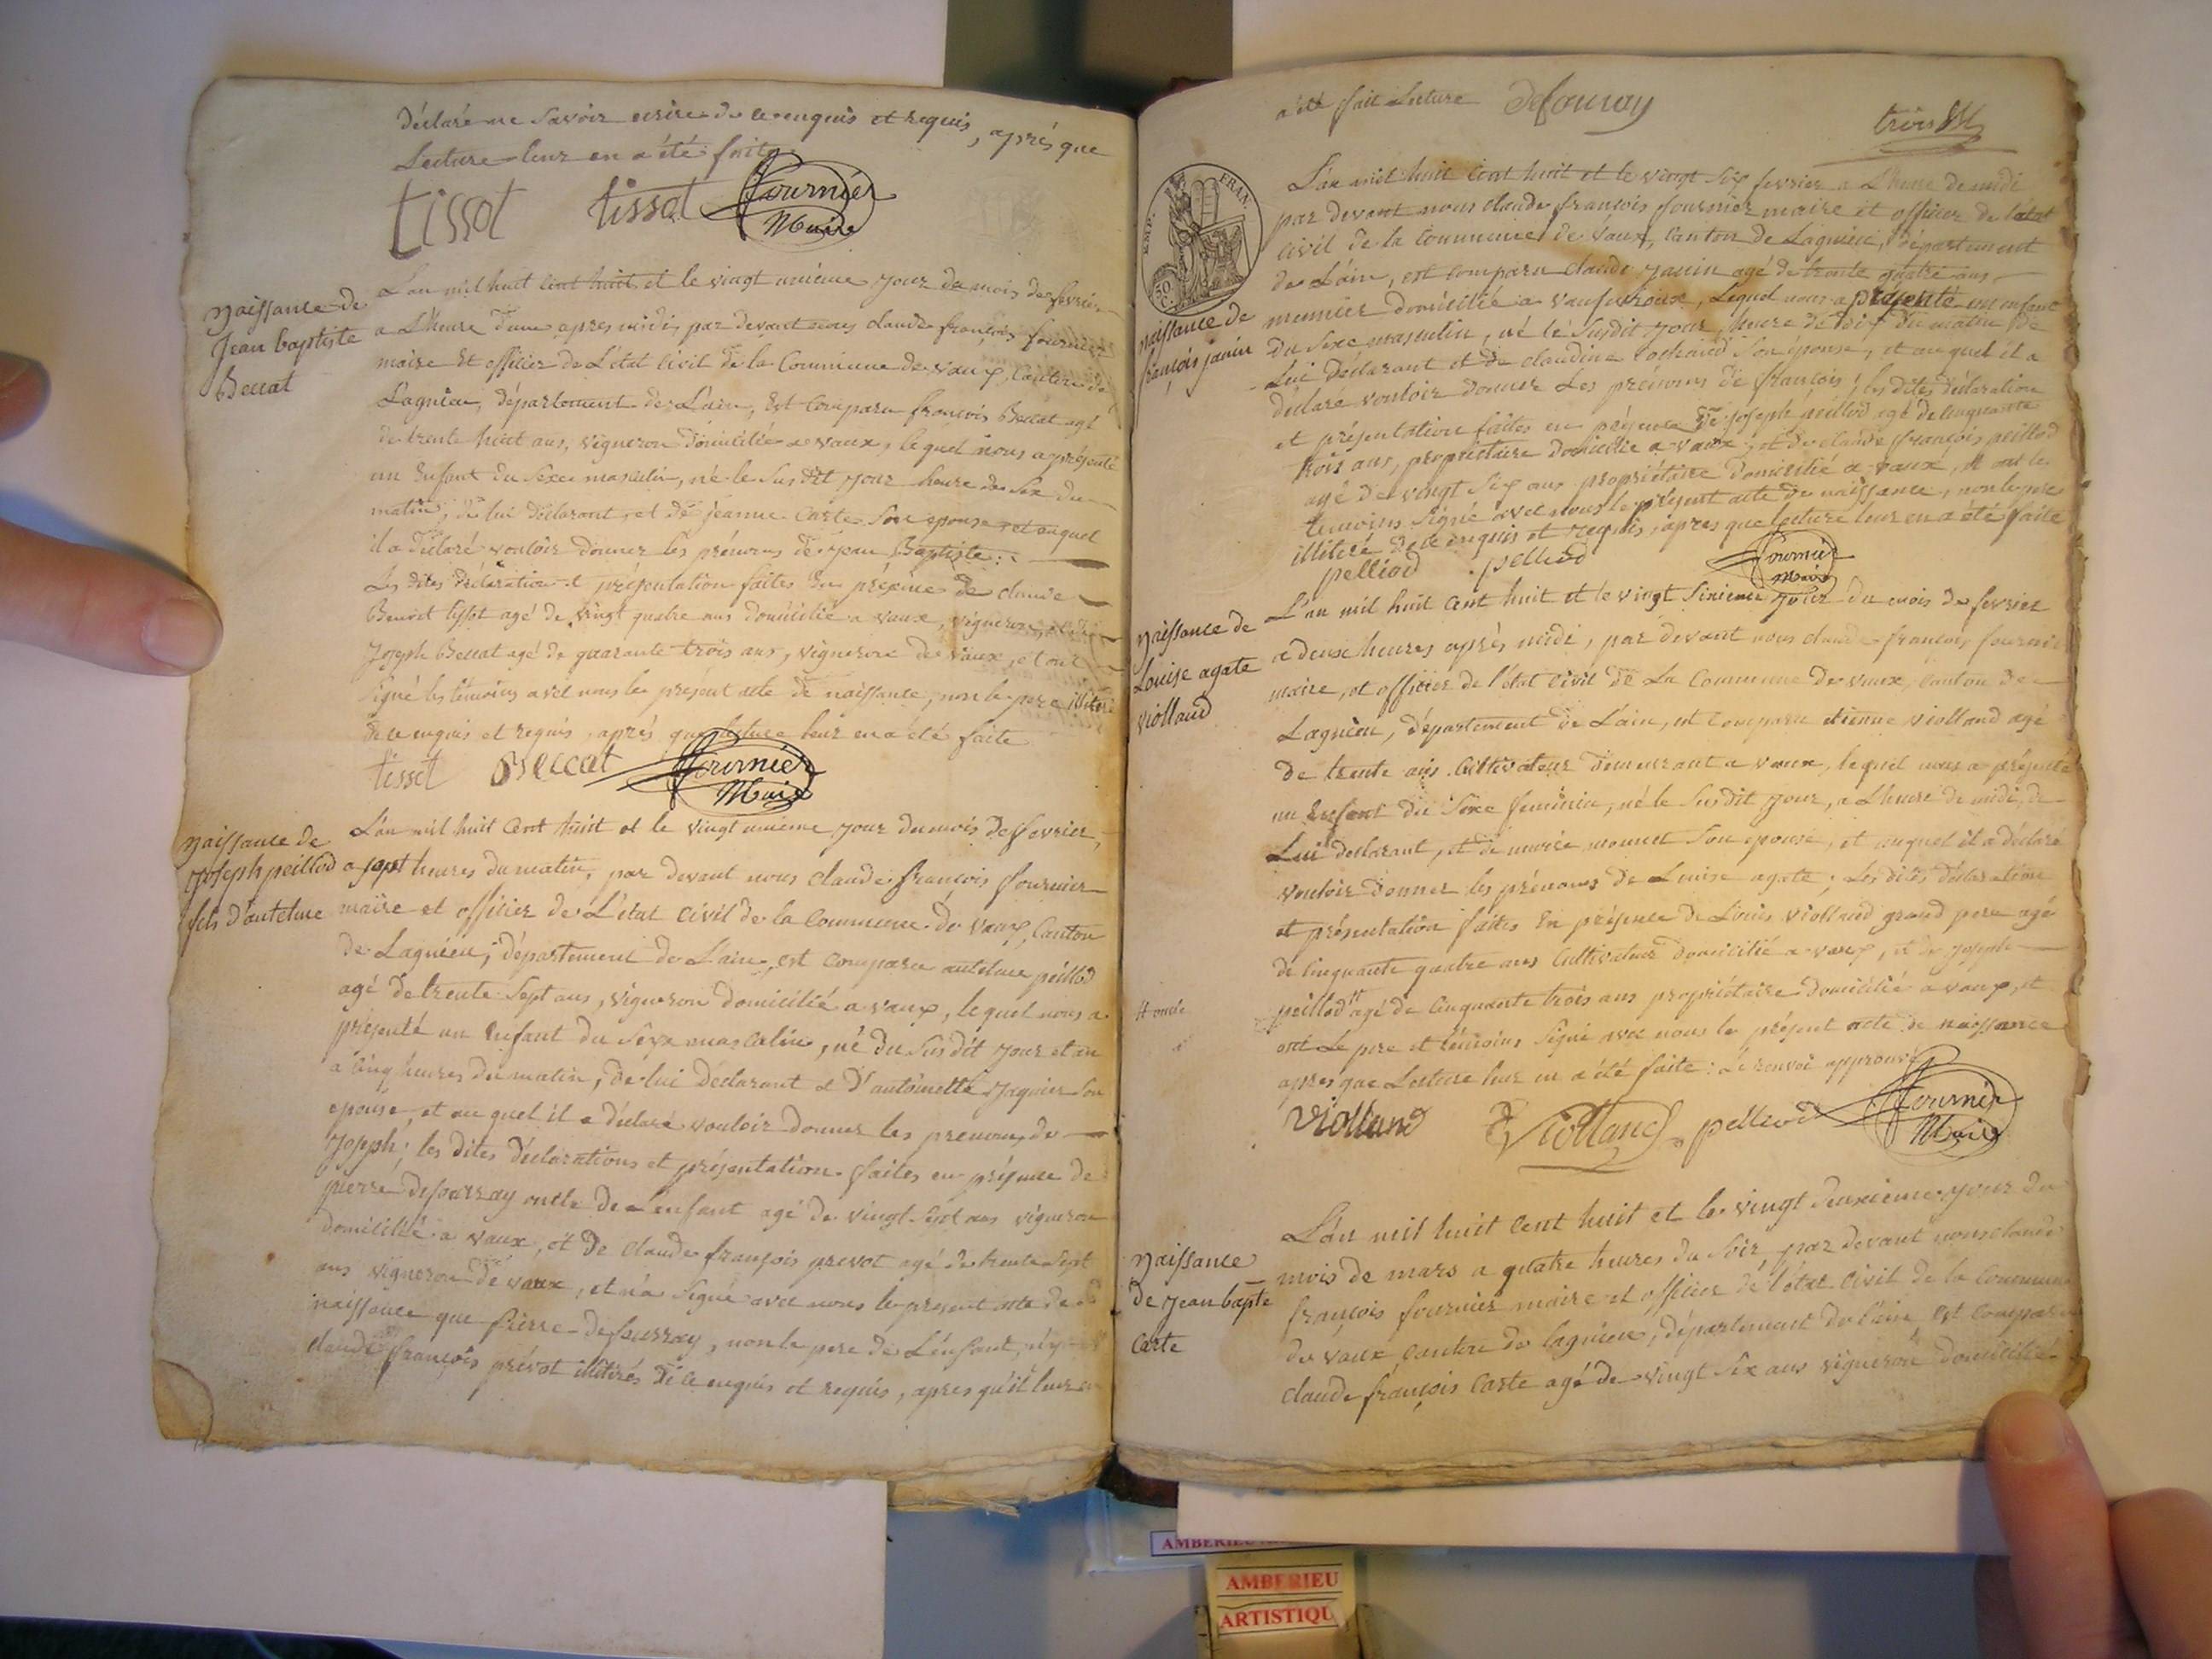 Déclaré ne Savoir ecrire de ce enquis et requis, aprés que
Lecture leur en a été faite.
tissot tissot fournier
Maire
Naissance de
Jean baptiste
Beccat
L'an mil huit cent huit et le vingt unieme jour du mois de fevrier
a L'heure d'une apres midi, par devant nous claude françois fournier
maire Et officier de L'état Civil de la Commune de vaux, Canton de
Lagnieu, département de L'ain, Est Comparu françois Beccat agé
de trente huit ans, vigneron domicilié a vaux, lequel nous a présenté
un Enfant du Sexe masculin, né le Susdit jour heure de Six du
matin, de lui déclarant, et de jeanne Carte Son epouse et auquel
il a déclaré vouloir donner les prénoms de jean Baptiste.
Les dites déclaration et présentation faites En présence de claude
Benoit tissot agé de vingt quatre ans domicilié a vaux, vigneron, et de
Joseph Beccat agé de quarante trois ans, vigneron de vaux, et ont
Signé les témoins avec nous le present acte de naissance, non le pere illitéré
de ce enquis et requis, aprés que lecture leur en a été faite
tissot Beccat fournier
Maire
Naissance de
Joseph peillod
fils d'antelme
L'an mil huit Cent huit et le vingt unieme jour du mois de fevrier,
a sept heures du matin, par devant nous Claude françois fournier
maire et officier de L'état Civil de la Commune de vaux, Canton
de Lagnieu, département de L'ain, est Comparu antelme peillod
agé de trente Sept ans, vigneron domicilié a vaux, lequel nous a
présenté un Enfant du Sexe masculin, né du Susdit jour et an
à Cinq heures du matin, de lui Déclarant et D'antoinette jaquier Son
epouse, et au quel il a déclaré vouloir donner les prenoms de
Joseph; les dites déclarations et présentation faites en présence de
pierre defourray oncle de L'enfant agé de vingt Sept ans vigneron
domicilié a vaux, et De Claude françois prevot agé de trente Sept
ans vigneron de vaux, et n'a Signé avec nous le present acte de
naissance que pierre defourray, non le pere de L'enfant, ny
claude françois prévot illitérés de ce enquis et requis, apres qu'il leur en
a été fait Lecture Defouray
trois
EMP. FRAN.
50
C.
naissance de
françois janin
L'an mil huit Cent huit et le vingt Six fevrier a L'heure de midi
par devant nous claude françois fournier maire et officier de l'état
civil de la Commune de vaux, Canton de Lagnieu, département
de L'ain, est Comparu claude janin agé de trente quatre ans
meunier domicilié a vaux, Lequel nous a présenté un enfant
du Sexe masculin, né le Susdit jour, heure de dix du matin de
Lui Déclarant et de claudine Son épouse, et auquel il a
déclaré vouloir donner Les prénoms de françois; les dites déclaration
et présentation faites en présence de joseph peillod agé de cinquante
trois ans, propriétaire domicilié a vaux, et de claude françois peillod
agé de vingt Six ans propriétaire domicilié a vaux, et ont les
temoins Signé avec nous le présent acte de naissance, non le pere
illitéré de ce enquis et requis, apres que lecture leur en a été faite
pelliod pelliod fournier
Maire
Naissance de
Louise agate
violland
L'an mil huit Cent huit et le vingt Sixieme jour du mois de fevrier
a deux heures aprés midi, par devant nous claude françois fournier
maire, et officier de l'état Civil de La Commune de vaux, Canton de
Lagnieu, département de L'ain, est Comparu etienne violland agé
de trente ans Cultivateur demeurant a vaux, lequel nous a présenté
un Enfant du Sexe feminin, né le Susdit jour, a L'heure de midi, de
Lui déclarant, et de marie monnet Son epouse, et auquel il a déclaré
vouloir donner les prénoms de Louise agate; Les dites déclaration
et présentation faites En présence de Louis violland grand pere agé
de Cinquante quatre ans Cultivateur domicilié a vaux, et de joseph
peillod # agé de Cinquante trois ans propriétaire domicilié a vaux, et
# oncle
ont Le pere et témoins Signé avec nous le présent acte de naissance
apres que Lecture leur en a été faite: Le renvoi approuvé
violland E Violland pelliod fournier
Maire
Naissance
de jean bapte
Carte
L'an mil huit Cent huit et le vingt deuxieme jour du
mois de mars a quatre heures du Soir, par devant nous claude
françois fournier maire et officier de l'état Civil de la Commune
de vaux Canton de lagnieu, département de l'ain est Comparu
Claude françois Carte agé de vingt Six ans vigneron domicilié
AMBERIEU
AMBERIEU
ARTISTIQU